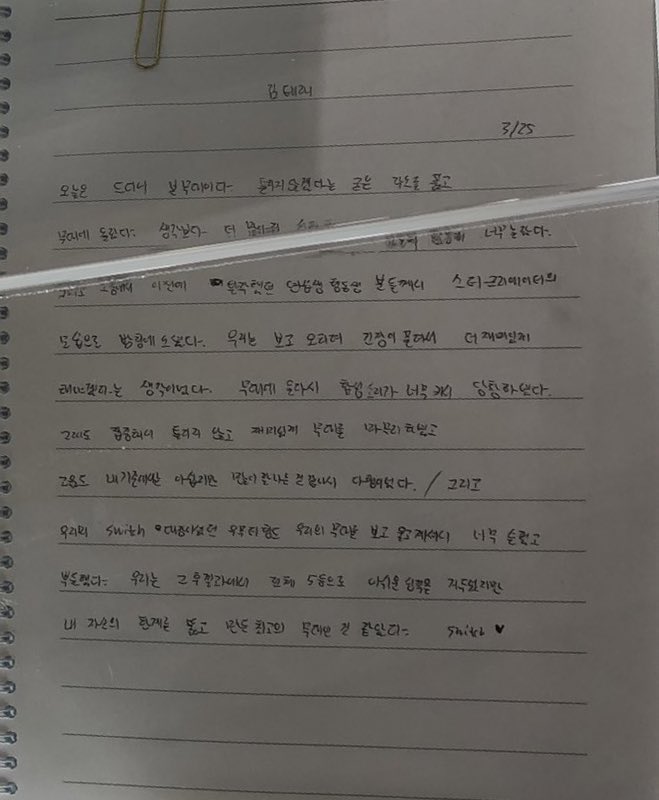 김태래
3/25
오늘은 드디어 본무대이다. 틀리지 않겠다는 굳은 각오를 품고
무대에 올랐다. 생각보다 더 너무 놀랐다.
그리고 그중에서 이전에 탈락했던 연습생 형동생 분들께서 스타 크리에이터의
모습으로 방청에 오셨다. 우리는 보고 오히려 긴장이 풀려서 더 재미있게
해야겠다는 생각이었다. 무대에 올랐더니 함성소리가 너무 커서 당황하였다.
그래도 집중해서 틀리지 않고 재미있게 무대를 마무리 하였고
고음도 내 기준에만 아쉽지만 끝나서 다행이었다. / 그리고
우리의 switch 우무티형도 우리의 무대를 보고 울고계셔서 너무 슬펐고
우리는 그 후 결과에서 전체 5등으로 아쉬운 거두었지만
내 자신의 한계를 뚫고 만든 최고의 무대인 것 같았다. switch ♥